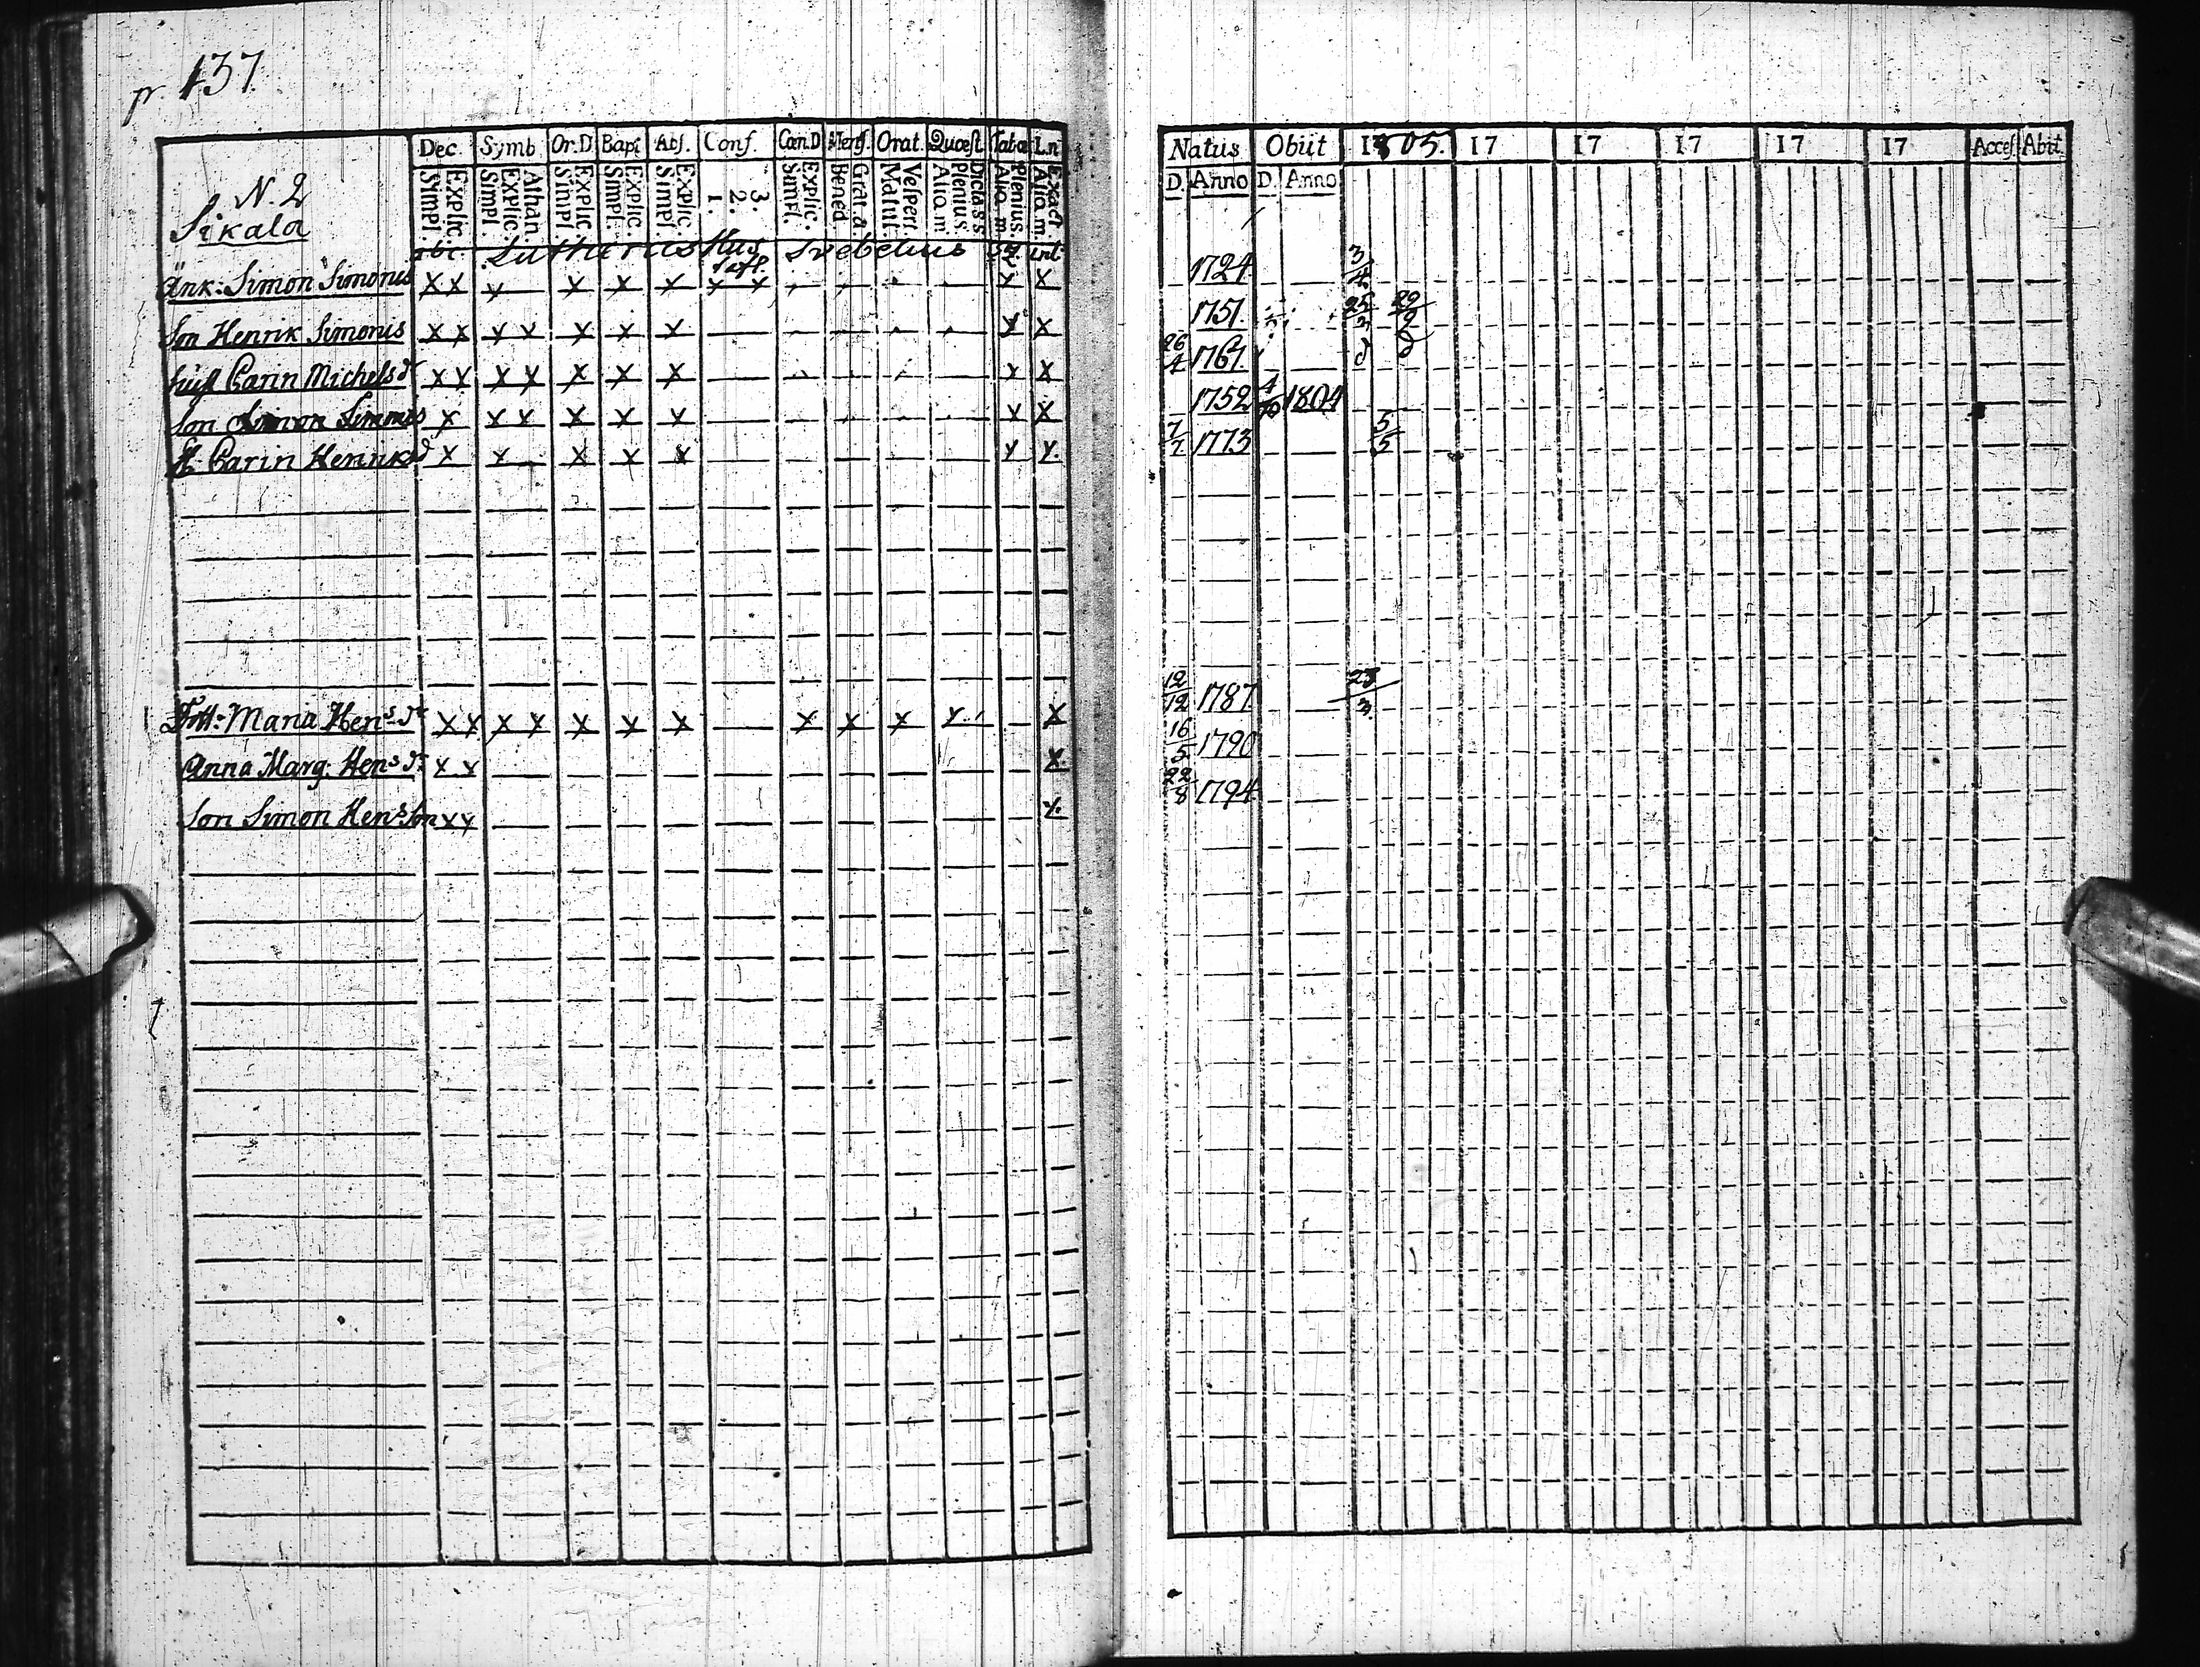 p. 437.
N. 2
Sikala
Dec. Symb. Or.D Bapt Abs. Conf. Cœn.D Mens. Orat. Quœst. Tabœ Ln
Explic. Simpl. Athan. Explic. Simpl. Explic. Simpl. Explic. Simpl. Explic. Simpl. 3. 2. 1. Explic. Simpl. Grat. a. Bened. Vespert. Matut. Dicta S.S. Plenius Aliq. m. Plenius. Aliq. m. Exact Aliq. m.
abc. Lutherus Hus Svebelius
Änk: Simon Simonis X X X X X X X X X X
Son Henrik Simonis X X X X X X X X X
hust Carin Michelsdr X X X X X X X X X
Son Simon Simonis X X X X X X X X
H. Carin Henriksd X X X X X X X
Dott: Maria Hensdr X X X X X X X X X X X X
Anna Marg: Hensdr X X X
Son Simon Hens Son X X X
Natus Obiit 1805. 17 17 17 17 17 Acces. Abit.
D. Anno D. Anno
1724 3/4
1751 25/3 29/9
26/4 1761
1752 4/10 1804
7/7 1773 5/5
12/12 1787 23/3
16/5 1790
22/8 1794